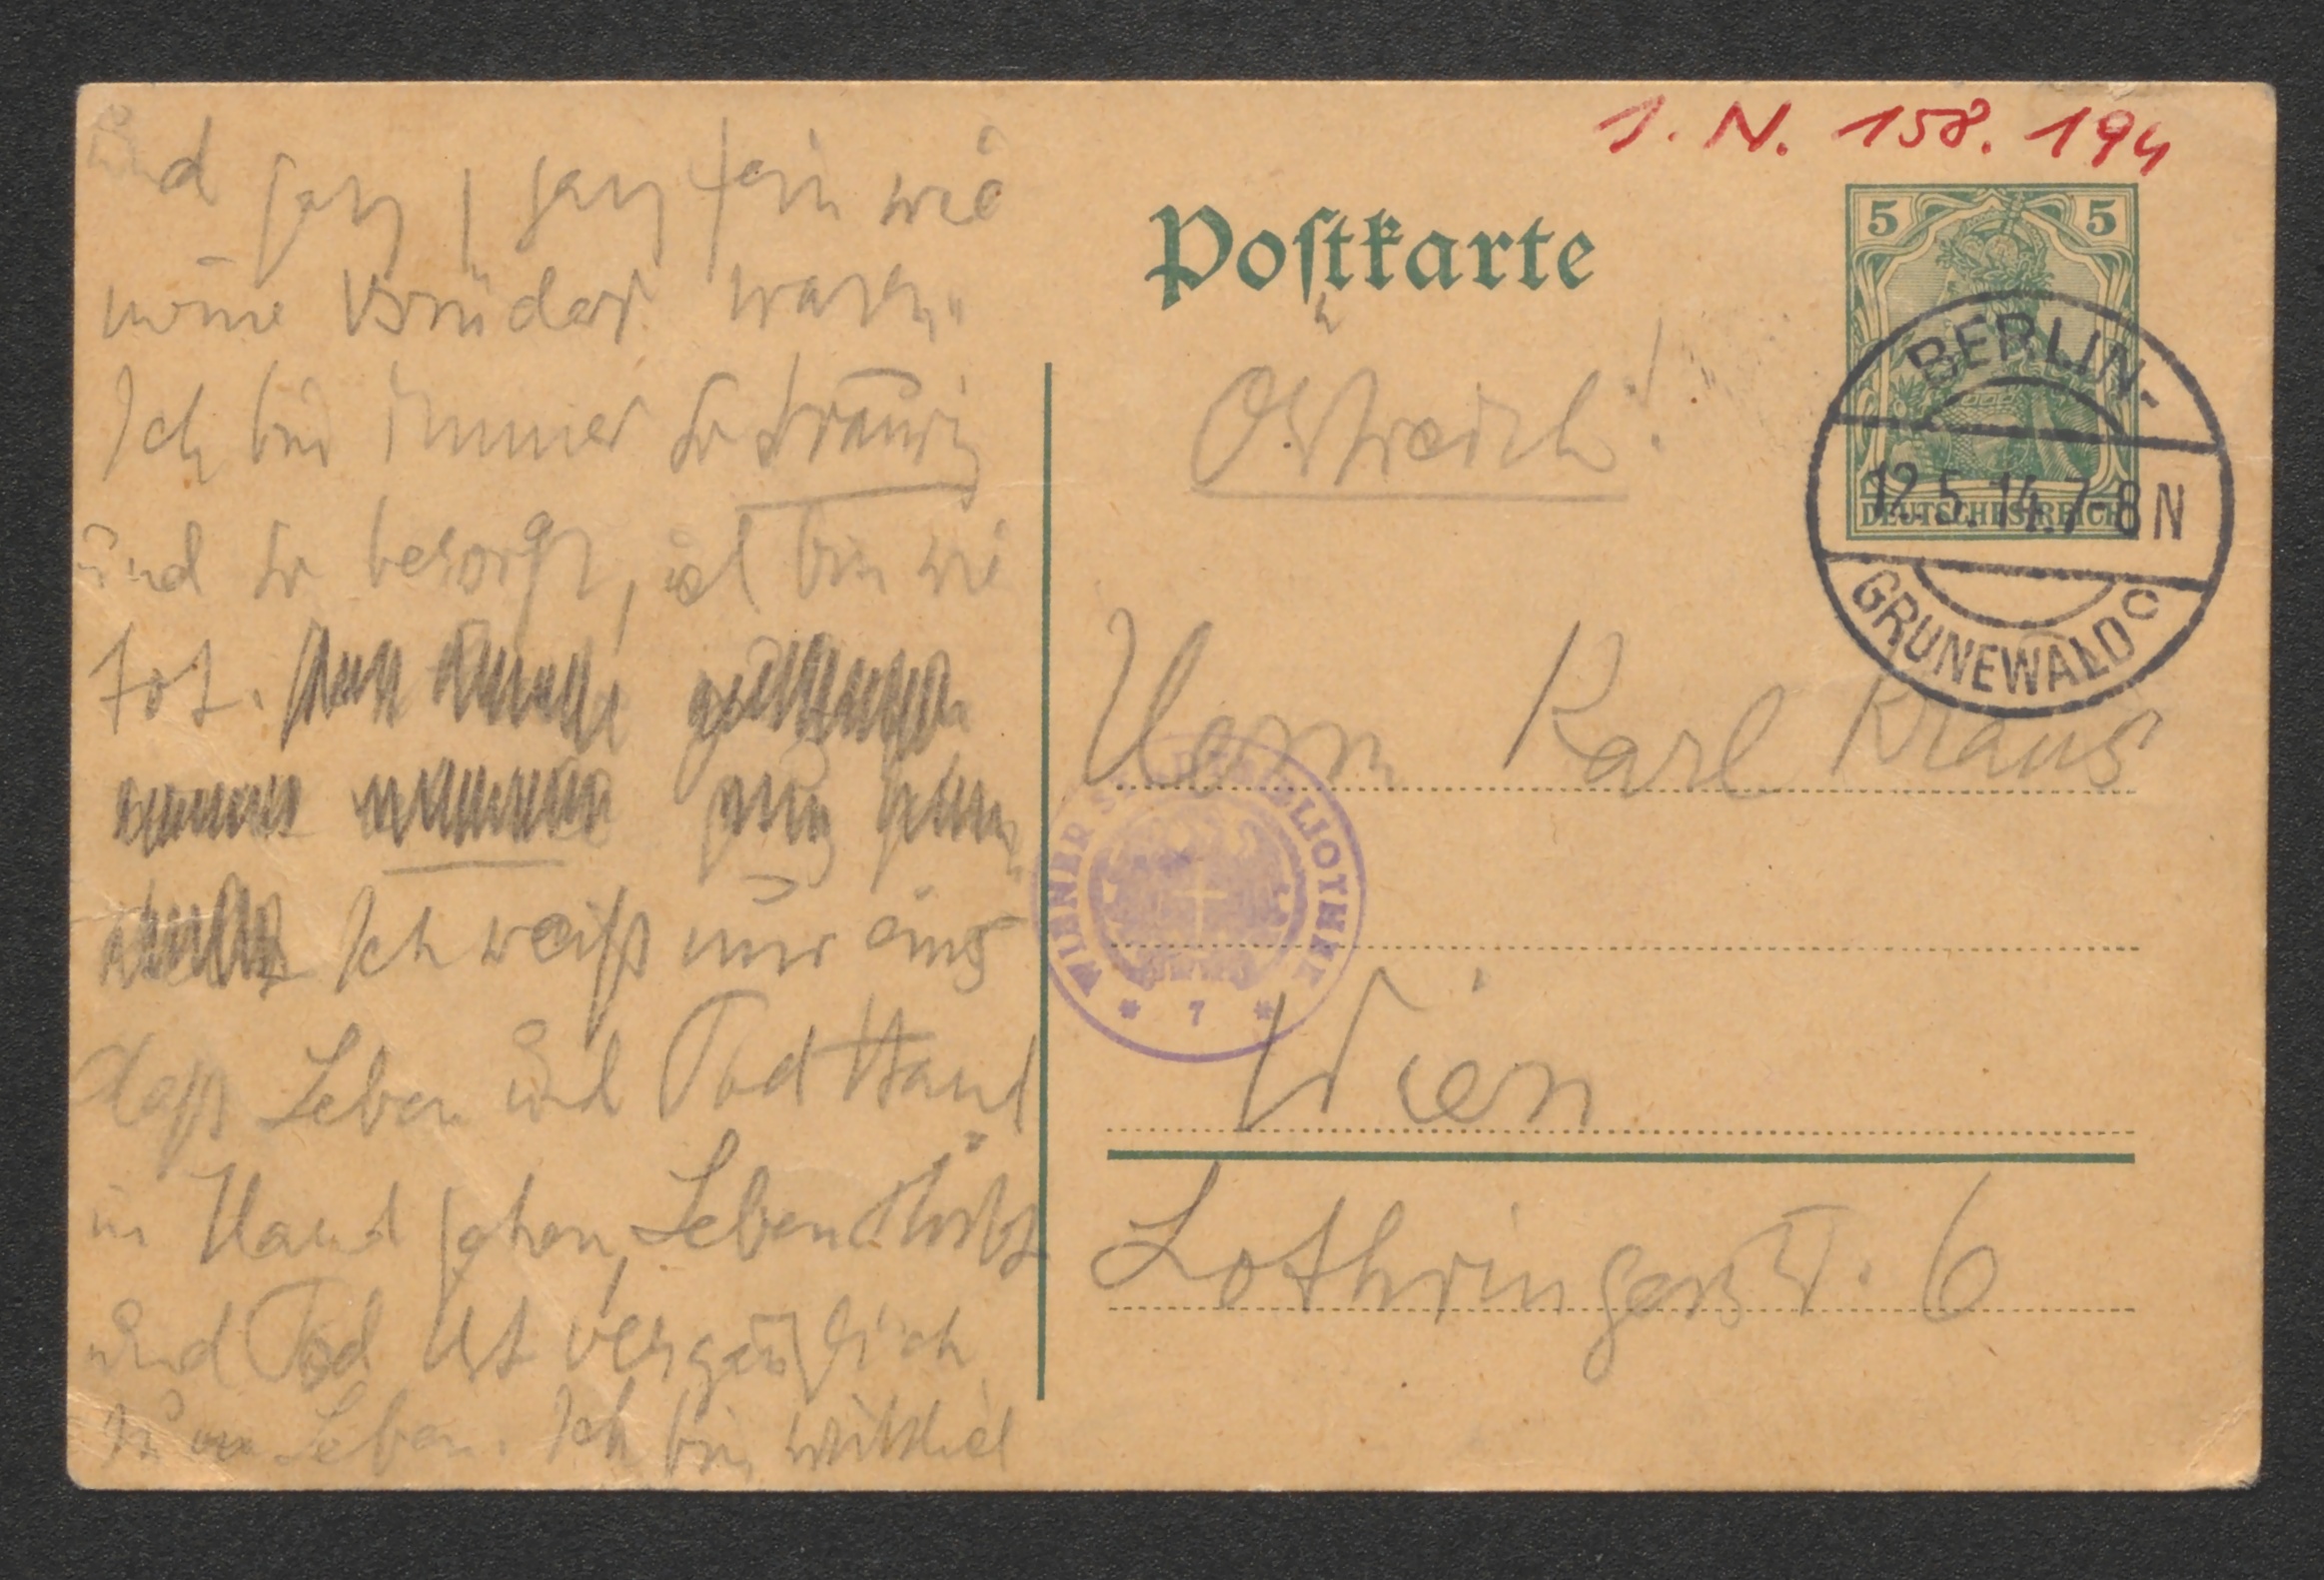 und ganz, ganz fein wie
meine Brüder waren.
Ich bin immer so traurig
und so besorgt, ich bin wie
tot.
Ich weiß nur eins
daß Leben und Tod Hand
in Hand gehen, Leben stirbt
und Tod ist vergänglich
zum Leben. Ich bin wirklich
I. N. 158. 194
Postkarte
5 5
DEUTSCHES REICH
BERLIN-
12.5.14. 7-8 N
GRUNEWALD
Östreich!
Herrn Karl Kraus
WIENER STADTBIBLIOTHEK
* 7 *
Wien
Lothringerstr. 6